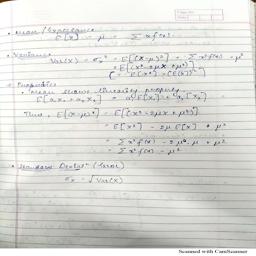 • Mean / Expectance
E[X] = μ = Σ x f(x)
• Variance
Var(X) = σx² = E[(X-μ)²] = Σ x² f(x) - μ²
= E[(X² - 2μX + μ²)]
(= E[X²] - (E(X))²)
• Properties
• Mean shows linearity property
E[a₁X₁ + a₂X₂] = a₁E[X₁] + a₂[X₂]
Thus, E[(X-μ)²] = E[(X² - 2μX + μ²)]
= E[X²] - 2μ E[X] + μ²
= Σ x² f(x) - 2μ·μ + μ²
= Σ x² f(x) - μ²
• Standard
σx = √Var(X)
Scanned with CamScanner